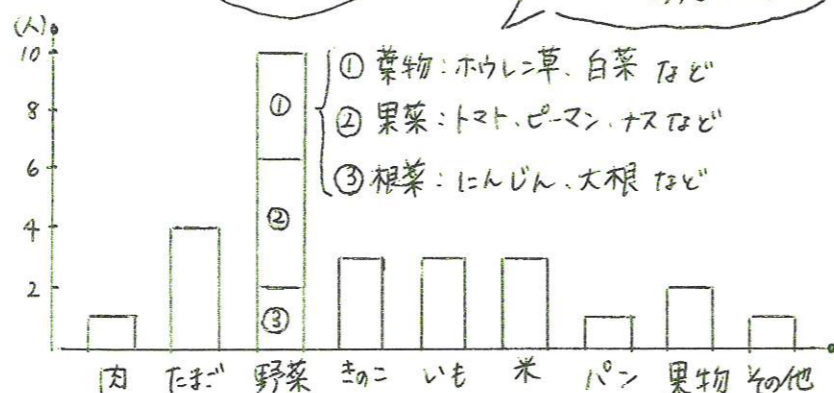 (人)
10
8
6
4
2
①
②
③
① 葉物:ホウレン草、白菜 など
② 果菜:トマト、ピーマン、ナス など
③ 根菜:にんじん、大根 など
肉 たまご 野菜 きのこ いも 米 パン 果物 その他